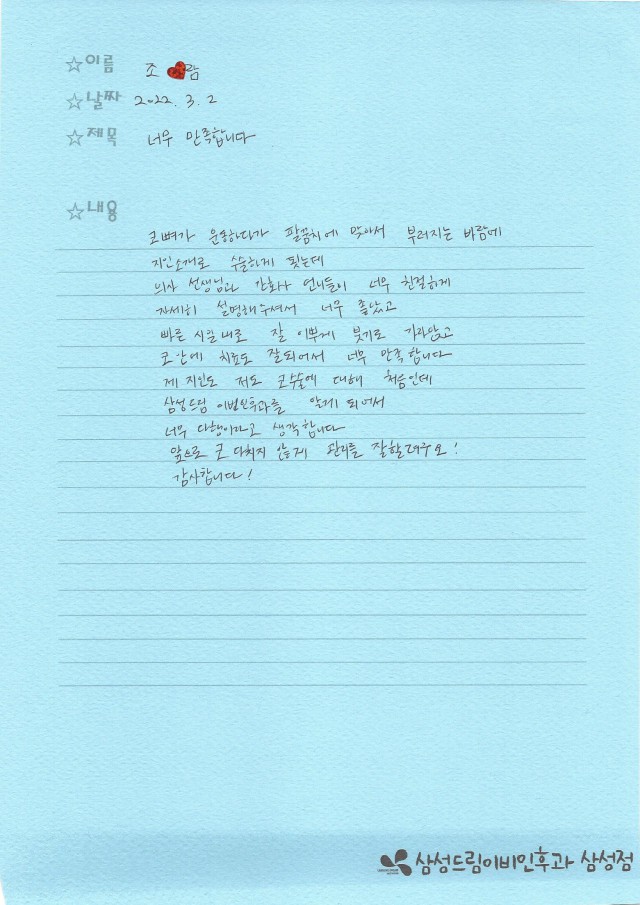 ☆이름 조 ❤람
☆날짜 2022. 3. 2
☆제목 너무 만족합니다
☆내용
코뼈가 운동하다가 팔꿈치에 맞아서 부러지는 바람에
지인소개로 수술하게 됬는데
의사 선생님과 간호사 언니들이 너무 친절하게
자세히 설명해주셔서 너무 좋았고
빠른 시일내로 잘 이쁘게 붓기로 가라앉고
코안에 치료도 잘되어서 너무 만족합니다
제 지인도 저도 코수술에 대해 처음인데
삼성드림 이비인후과를 알게 되어서
너무 다행이라고 생각합니다
앞으로 코 다치지 않게 관리를 잘할려구요!
감사합니다!
삼성드림이비인후과 삼성점